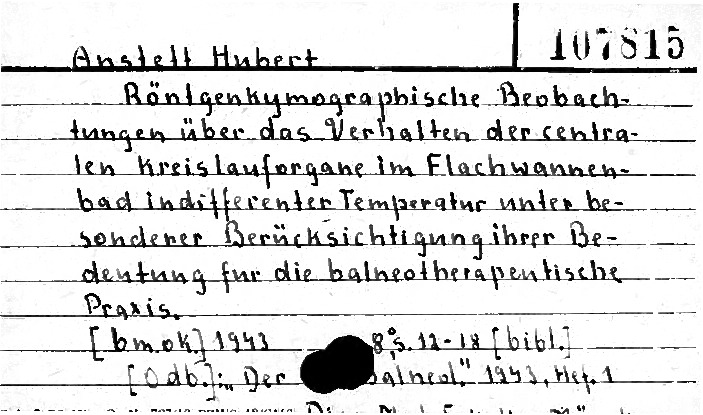 Anstett Hubert 107815
Röntgenkymographische Beobach-
tungen über das Verhalten der centra-
len Kreislauforgane im Flachwannen-
bad indifferenter Temperatur unter be-
sonderer Berücksichtigung ihrer Be-
deutung fur die balneotherapeutische
Praxis.
[bm.ok.] 1943 8°, s. 12-18 [bibl.]
[Odb.]: „Der balneol." 1943, Hef. 1